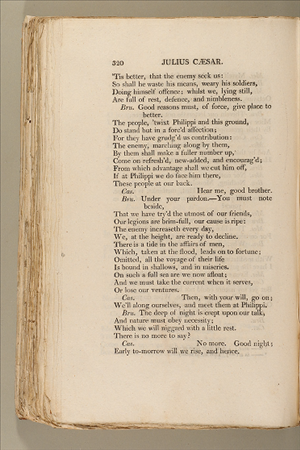 320 JULIUS CÆSAR.
'Tis better, that the enemy seek us:
So shall he waste his means, weary his soldiers,
Doing himself offence: whilst we, lying still,
Are full of rest, defence, and nimbleness.
Bru. Good reasons must, of force, give place to
better.
The people, 'twixt Philippi and this ground,
Do stand but in a forc'd affection;
For they have grudg'd us contribution:
The enemy, marching along by them,
By them shall make a fuller number up,
Come on refresh'd, new-added, and encourag'd;
From which advantage shall we cut him off,
If at Philippi we do face him there,
These people at our back.
Cas. Hear me, good brother.
Bru. Under your pardon.—You must note
beside,
That we have try'd the utmost of our friends,
Our legions are brim-full, our cause is ripe:
The enemy increaseth every day,
We, at the height, are ready to decline.
There is a tide in the affairs of men,
Which, taken at the flood, leads on to fortune;
Omitted, all the voyage of their life
Is bound in shallows, and in miseries.
On such a full sea are we now afloat;
And we must take the current when it serves,
Or lose our ventures.
Cas. Then, with your will, go on;
We'll along ourselves, and meet them at Philippi.
Bru. The deep of night is crept upon our talk,
And nature must obey necessity;
Which we will niggard with a little rest.
There is no more to say?
Cas. No more. Good night:
Early to-morrow will we rise, and hence.